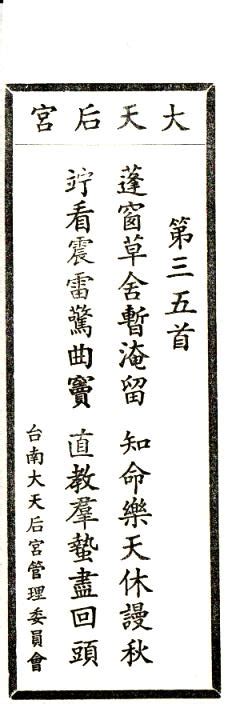 大天后宮
第三五首
蓬窗草舍暫淹留　知命樂天休謾秋
竚看震雷驚曲竇　直教羣蟄盡回頭
台南大天后宮管理委員會